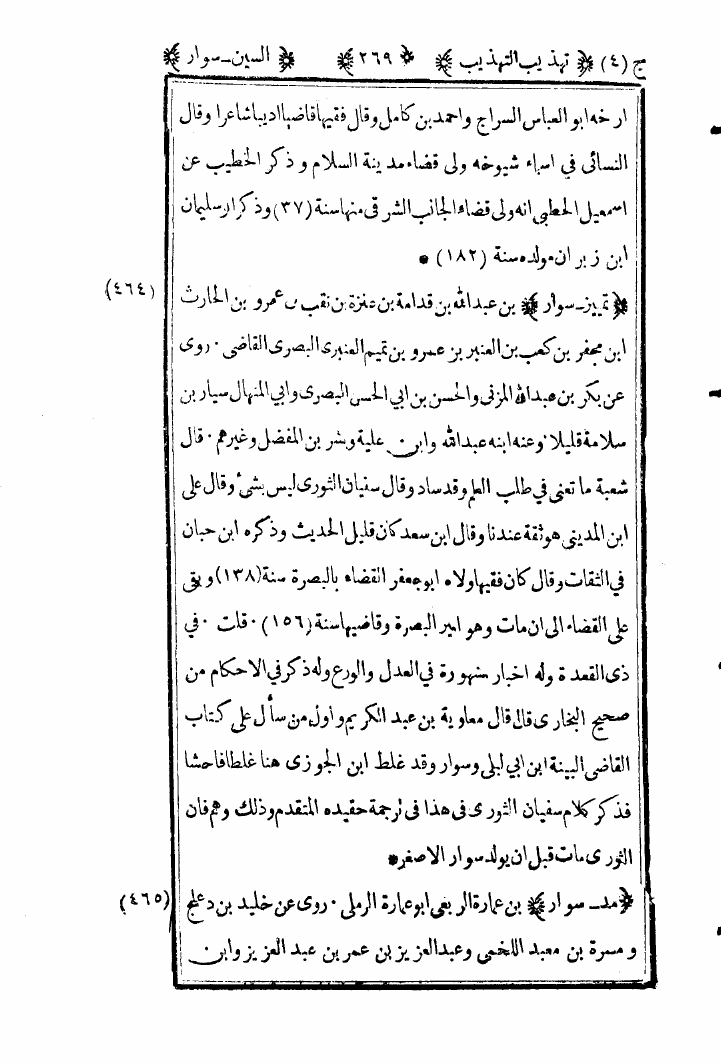 ج (٤) ﴿ تهذيب التهذيب ﴾ ﴿ ٢٦٩ ﴾ ﴿ السين ـ سوار ﴾
ارخه ابو العباس السراج واحمد بن كامل وقال فقيها قاضيا اديبا شاعرا وقال
النسائى في اسماء شيوخه ولى قضاء مدينة السلام و ذكر الخطيب عن
اسمعيل الخطبي انه ولى قضاء الجانب الشرقى منها سنة (٣٧) وذكر ابو سليمان
ابن زبر ان مولده سنة (١٨٢) *
﴿ تمييز ـ سوار ﴾ بن عبدالله بن قدامة بن عنزة بن نقب بن عمرو بن الحارث (٤٦٤)
ابن مجفر بن كعب بن العنبر بن عمرو بن تميم العنبرى البصرى القاضى ٠ روى
عن بكر بن عبدالله المزنى والحسن بن ابي الحسن البصرى وابي المنهال سيار بن
سلامة قليلا ٠ وعنه ابنه عبدالله وابن علية وبشر بن المفضل وغيرهم ٠ قال
شعبة ما تعنى في طلب العلم وقد ساد وقال سفيان الثورى ليس بشئ وقال على
ابن المديني هو ثقة عندنا وقال ابن سعد كان قليل الحديث وذكره ابن حبان
في الثقات وقال كان فقيها ولاه ابو جعفر القضاء بالبصرة سنة (١٣٨) وبقى
على القضاء الى ان مات وهو امير البصرة وقاضيها سنة (١٥٦) ٠ قلت ٠ في
ذى القعدة وله اخبار مشهورة في العدل والورع وله ذكر في الاحكام من
صحيح البخارى قال قال معاوية بن عبد الكريم واول من سأل على كتاب
القاضى البينة ابن ابي ليلى وسوار وقد غلط ابن الجوزى هنا غلطا فاحشا
فذكر كلام سفيان الثورى فى هذا فى ترجمة حقيده المتقدم وذلك وهم فان
الثورى مات قبل ان يولد سوار الاصغر *
﴿ مد ـ سوار ﴾ بن عمارة الربعى ابو عمارة الرملى ٠ روى عن خليد بن دعلج (٤٦٥)
و مسرة بن معبد اللخمى وعبدالعزيز بن عمر بن عبد العزيز وابن